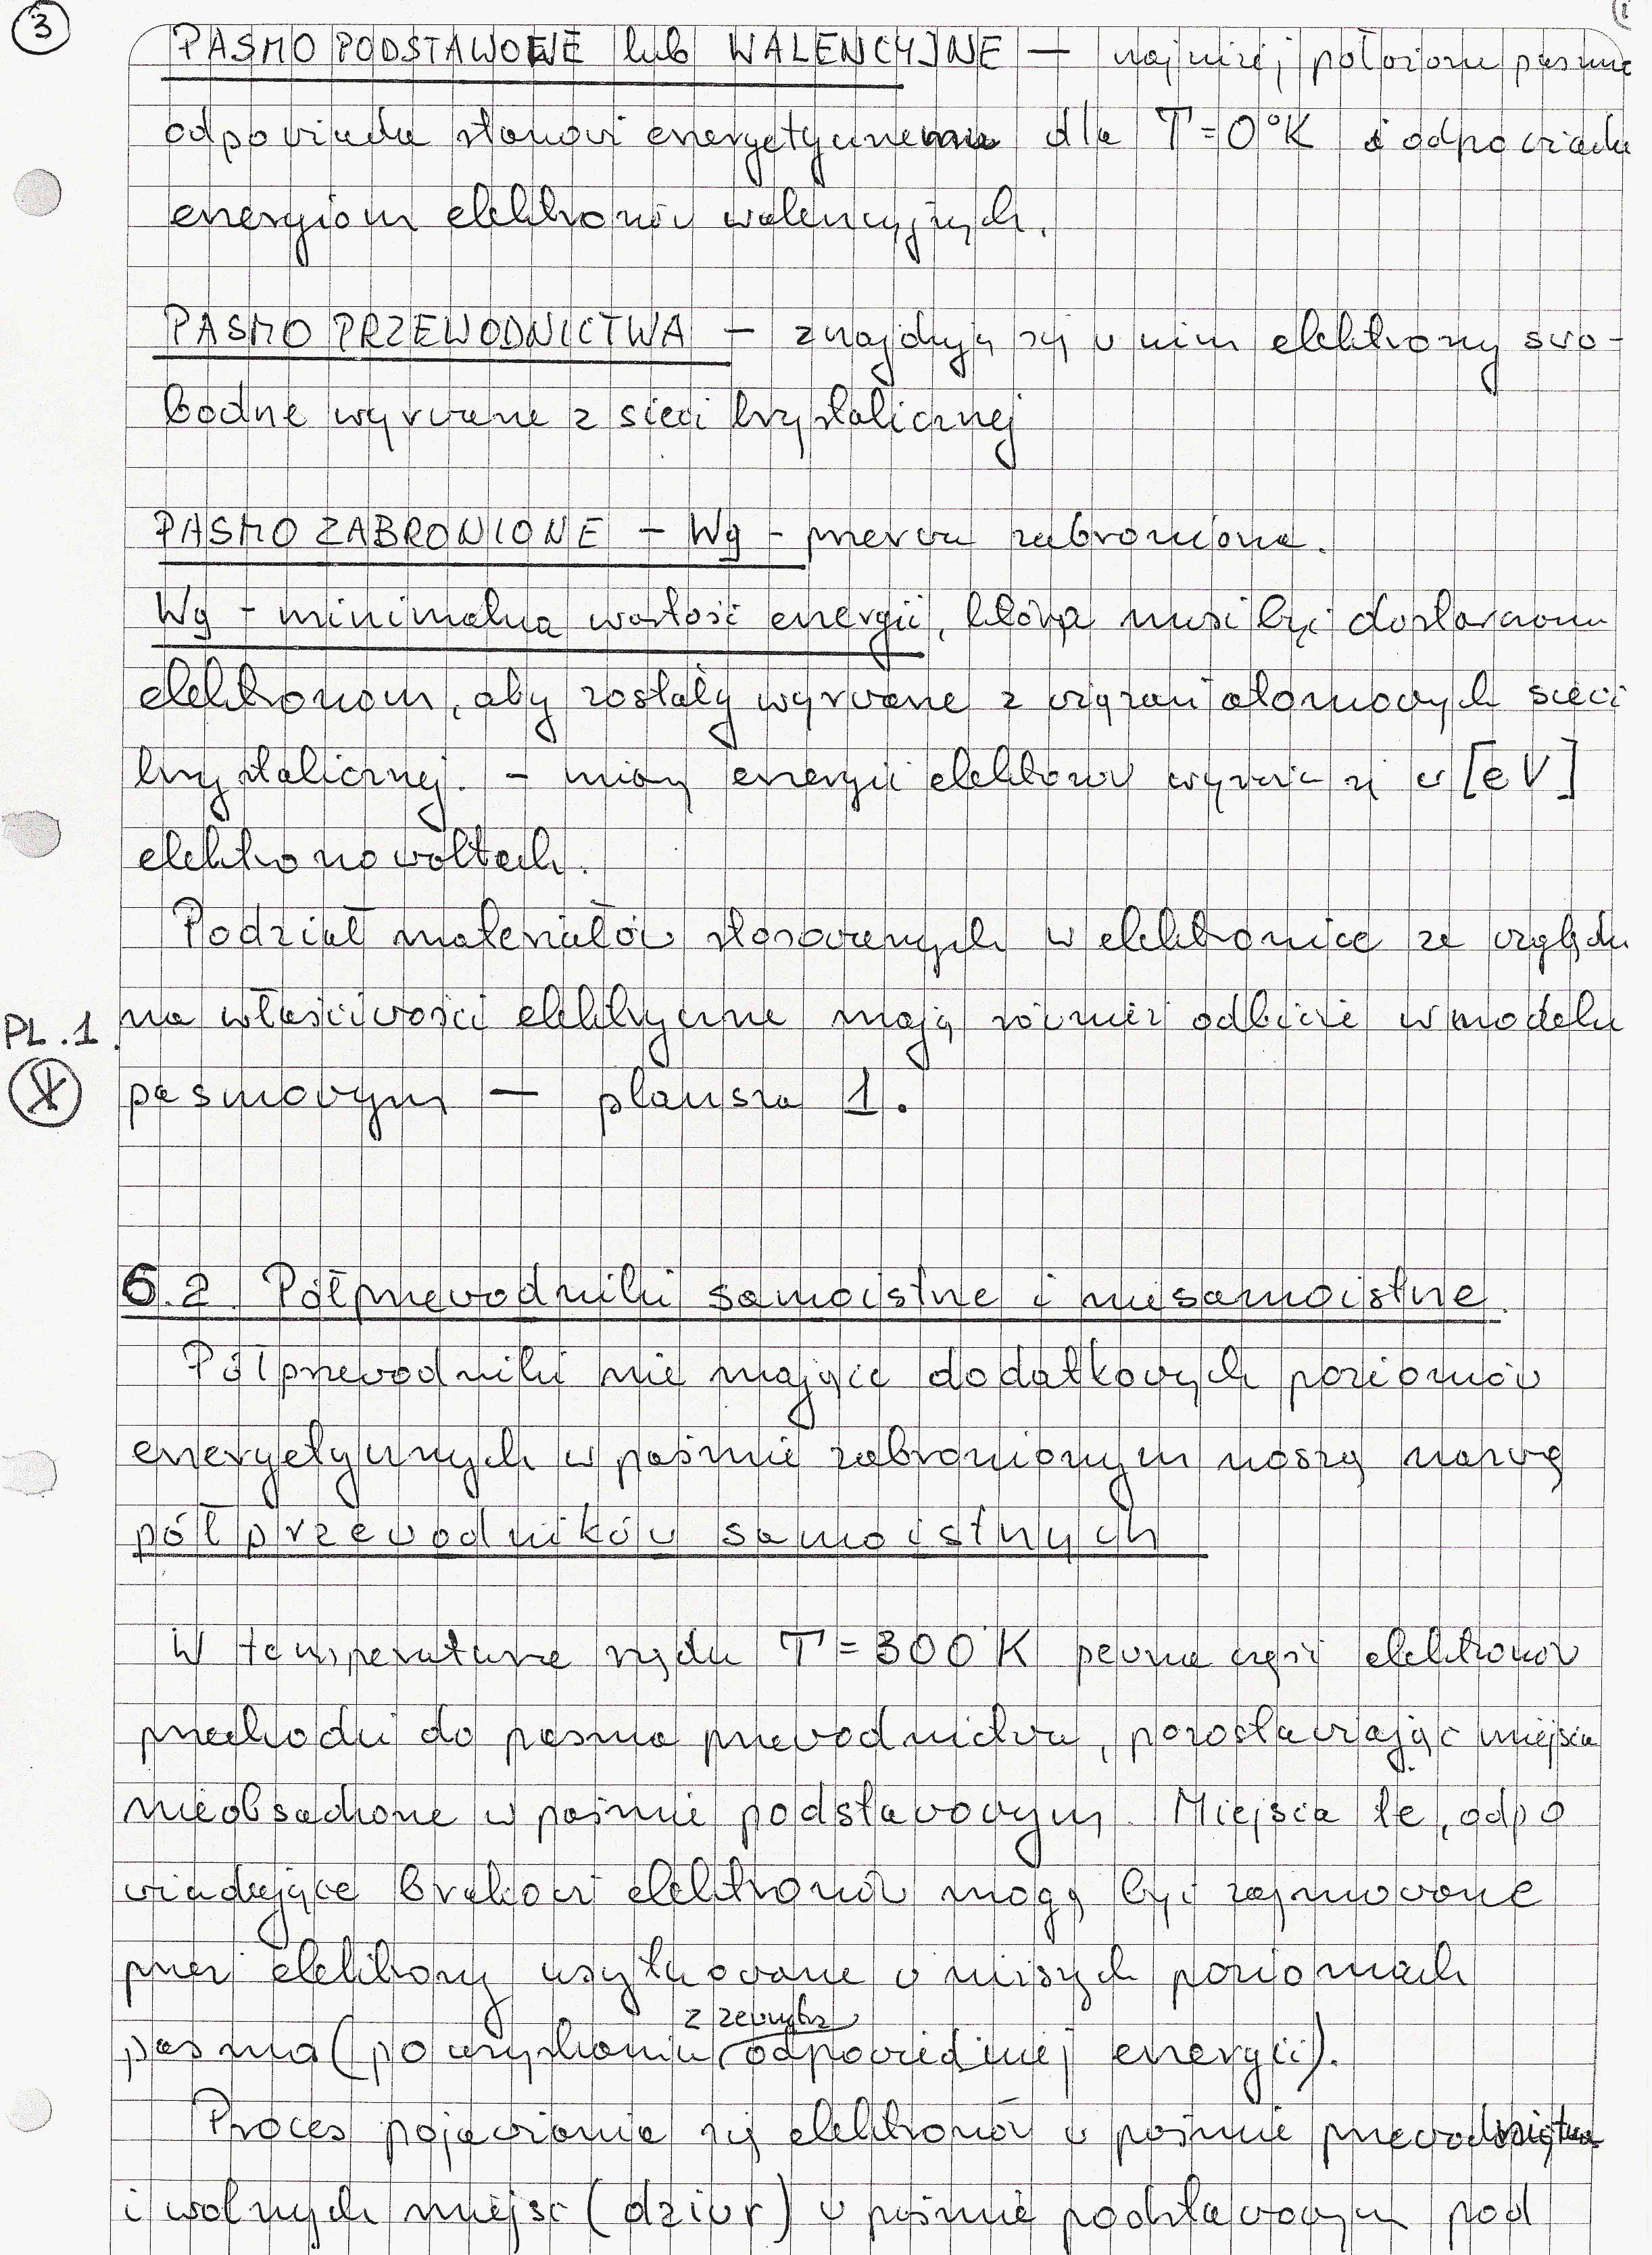 3
PASMO PODSTAWOWE lub WALENCYJNE — najniżej położone pasmo
odpowiada stanowi energetycznemu dla T=0°K i odpowiada
energiom elektronów walencyjnych.
PASMO PRZEWODNICTWA — znajdują się w nim elektrony swo-
bodne wyrwane z sieci krystalicznej
PASMO ZABRONIONE - Wg - przerwa zabroniona.
Wg - minimalna wartość energii, która musi być dostarczona
elektronom, aby zostały wyrwane z wiązań atomowych sieci
krystalicznej. - miarę energii elektronów wyraża się w [eV]
elektronowoltach.
Podział materiałów stosowanych w elektronice ze względu
PL.1. na właściwości elektryczne mają również odbicie w modelu
pasmowym — plansza 1.
6.2. Półprzewodniki samoistne i niesamoistne.
Półprzewodniki nie mające dodatkowych poziomów
energetycznych w paśmie zabronionym noszą nazwę
półprzewodników samoistnych
W temperaturze rzędu T=300°K pewna część elektronów
przechodzi do pasma przewodnictwa, pozostawiając miejsca
nieobsadzone w paśmie podstawowym. Miejsca te, odpo
wiadające brakowi elektronów mogą być zajmowane
przez elektrony usytuowane w niższych poziomach
z zewnątrz
pasma (po uzyskaniu odpowiedniej energii).
Proces pojawiania się elektronów w paśmie przewodnictwa
i wolnych miejsc (dziur) w paśmie podstawowym pod